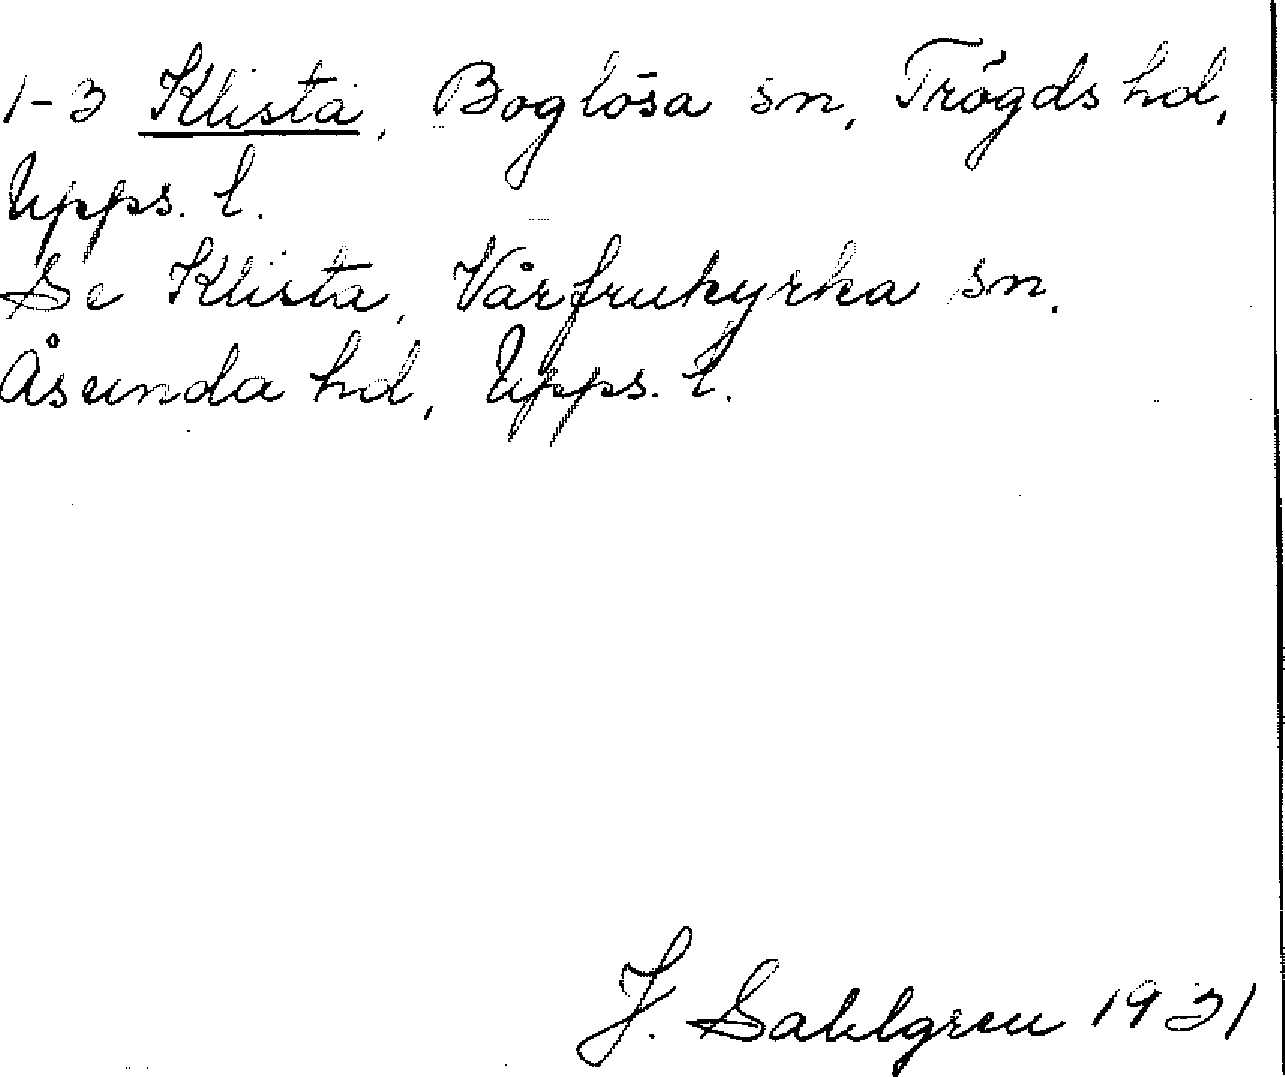 1-3 Klista, Boglösa sn, Trögds hd,
Upps. l.
Se Klista, Vårfrukyrka sn.
Åsunda hd, Upps. l.
J. Sahlgren 1931